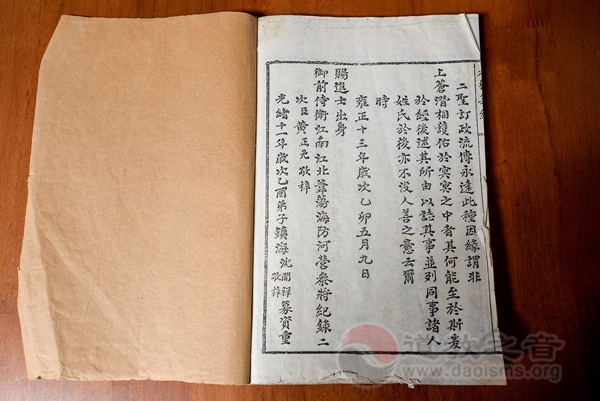 二聖訂政流傳永遠此種因緣謂非
上蒼潛相護佑於冥冥之中者其何能至於斯爰
於經後述其所由以誌其事並列同事諸人
姓氏於後亦不没人善之意云爾
時
雍正十三年歲次乙卯五月九日
賜進士出身
御前侍衛江南江北葦蕩海防河營叅將紀錄二
次臣黃正元敬梓
光緒十一年歲次乙酉弟子鎮海沈開祥敬梓募資重
道教之音
www.daoisms.org